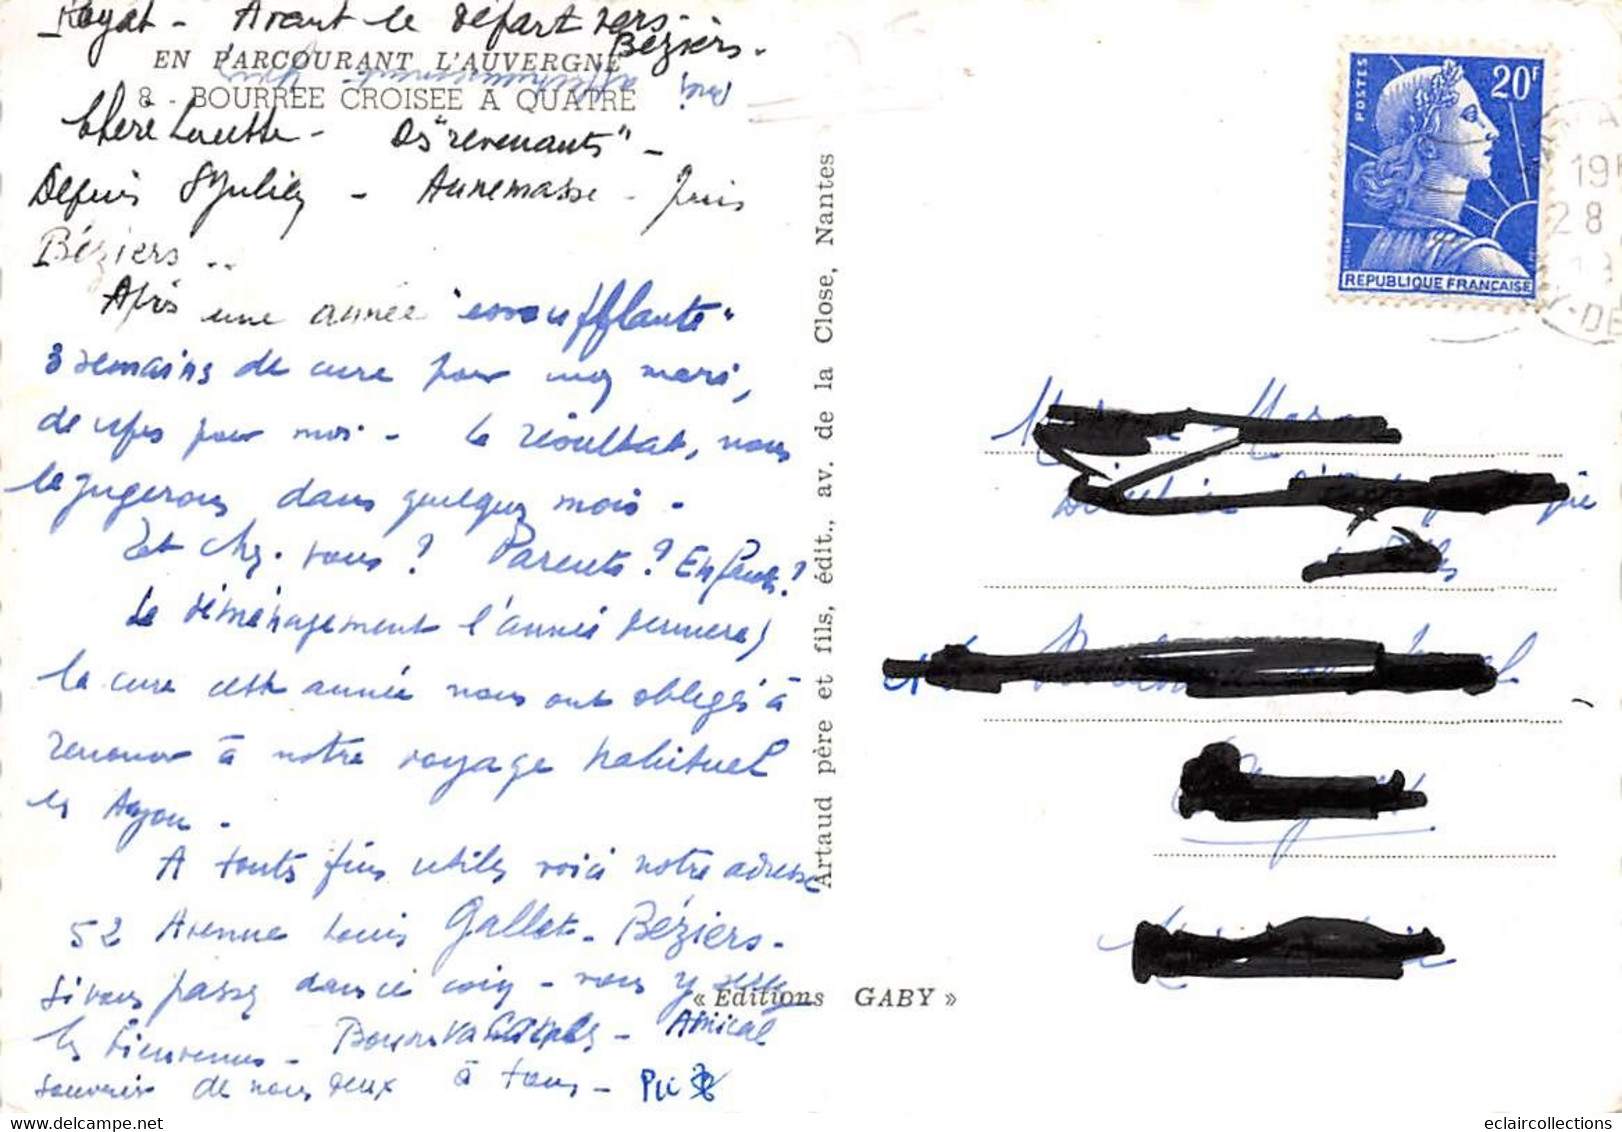 Royat - Avant le départ vers
Béziers -
EN PARCOURANT L'AUVERGNE
8 - BOURRÉE CROISÉE A QUATRE
Chère - Des "revenants" -
Depuis - Annemasse - puis
Béziers ..
Après une année "essoufflante"
3 semains de cure pour mon mari,
de repos pour moi - le résultat, nous
le jugerons dans quelques mois -
Et chez vous ? Parents ? Enfants ?
Le déménagement l'année dernière,
la cure cette année nous ont obligés à
renoncer à notre voyage habituel
-
A toutes fins utiles voici notre adresse
52 Avenue Louis Gallet - Béziers -
si vous passez dans ce coin - vous y serez
les bienvenus - Bonnes vacances - Amical
souvenir de nous deux à tous -
Artaud père et fils, édit., av. de la Close, Nantes
« Editions GABY »
POSTES
20F
REPUBLIQUE FRANÇAISE
19H
28
eclaircollections